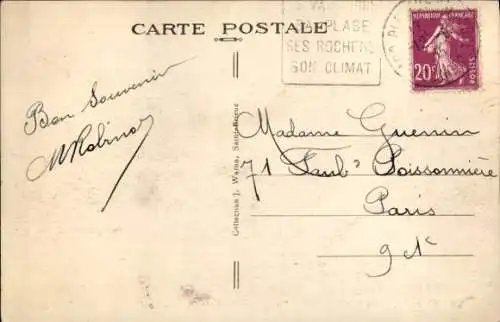 CARTE POSTALE
SA PLAGE
SES ROCHERS
SON CLIMAT
REPUBLIQUE FRANÇAISE
20c
POSTES
Bon Souvenir
Collection J. Waron, Saint-Brieuc
Madame Guernin
71 Faubg Poissonnière
Paris
9e